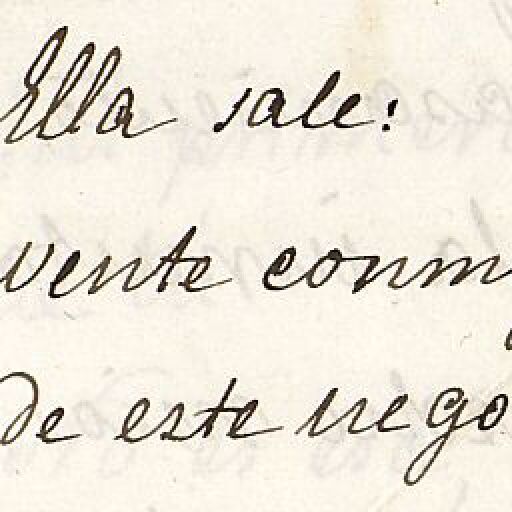 Ella sale:
vente conm
de este nego